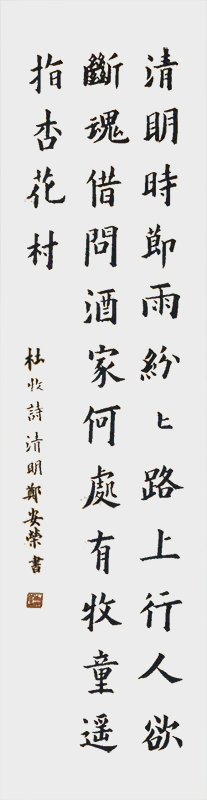 清明時節雨紛〻路上行人欲
斷魂借問酒家何處有牧童遥
指杏花村
杜牧詩清明鄭安榮書